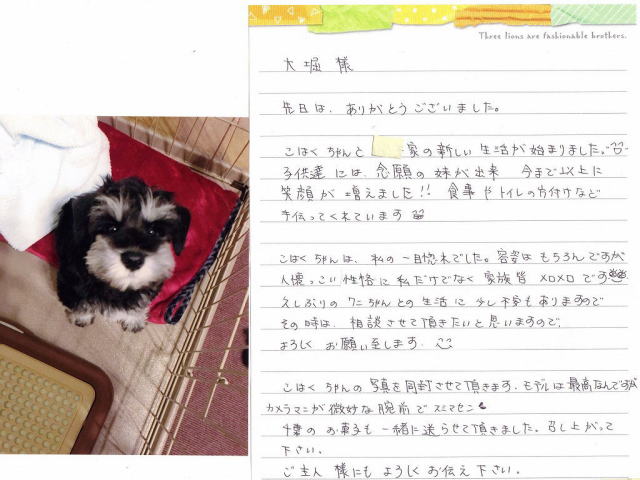 Three lions are fashionable brothers.
大堀 様
先日は、ありがとうございました。
こはくちゃんと 家の新しい生活が始まりました。
子供達には、念願の妹が出来 今まで以上に
笑顔が増えました!! 食事やトイレの片付けなど
手伝ってくれています
こはくちゃんは、私の一目惚れでした。容姿はもちろんですが
人懐っこい性格に私だけでなく家族皆メロメロです
久しぶりのワンちゃんとの生活に少し不安もありますので
その時は、相談させて頂きたいと思いますので、
よろしくお願い至します。
こはくちゃんの写真を同封させて頂きます。モデルは最高なんですが
カメラマンが微妙な腕前でスミマセン
千葉のお菓子も一緒に送らせて頂きました。召し上がって
下さい。
ご主人様にもよろしくお伝え下さい。